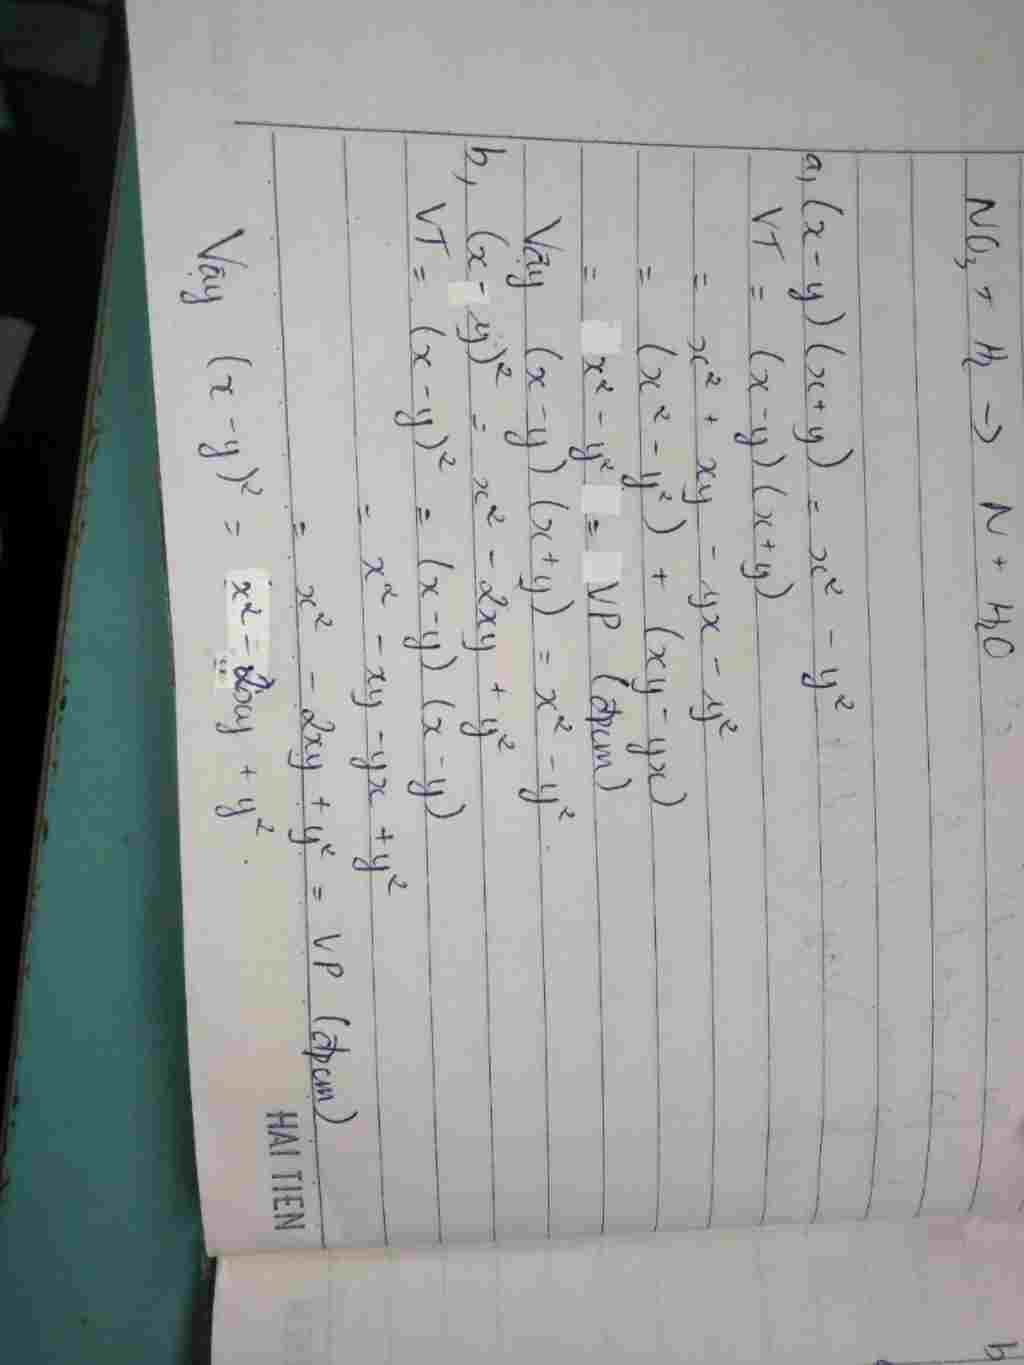 NO₃ + H₂ → N + H₂O
a, (x-y)(x+y) = x² - y²
VT = (x-y)(x+y)
= x² + xy - yx - y²
= (x² - y²) + (xy - yx)
= x² - y² = VP (đpcm)
Vậy (x-y)(x+y) = x² - y².
b, (x-y)² = x² - 2xy + y²
VT = (x-y)² = (x-y)(x-y)
= x² - xy - yx + y²
= x² - 2xy + y² = VP (đpcm)
Vậy (x-y)² = x² - 2xy + y².
HẢI TIẾN
b